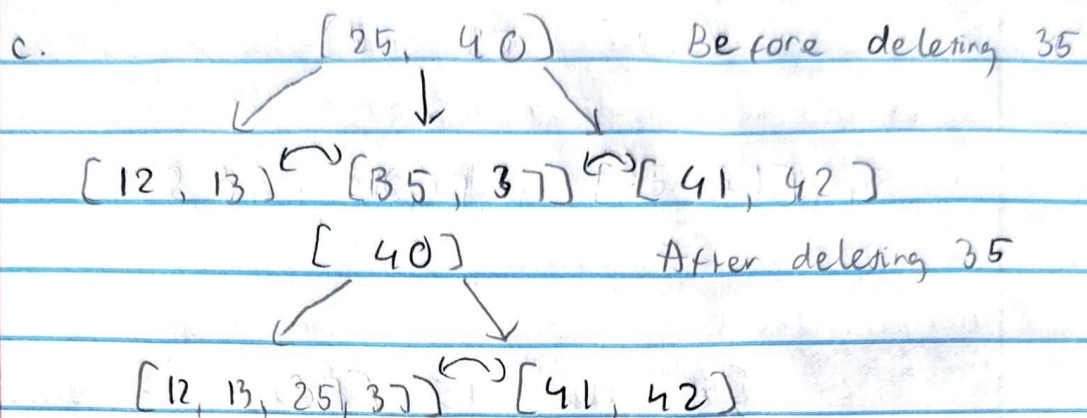 c. [25, 40] Before deleting 35
[12, 13] [35, 37] [41, 42]
[40] After deleting 35
[12, 13, 25, 37] [41, 42]